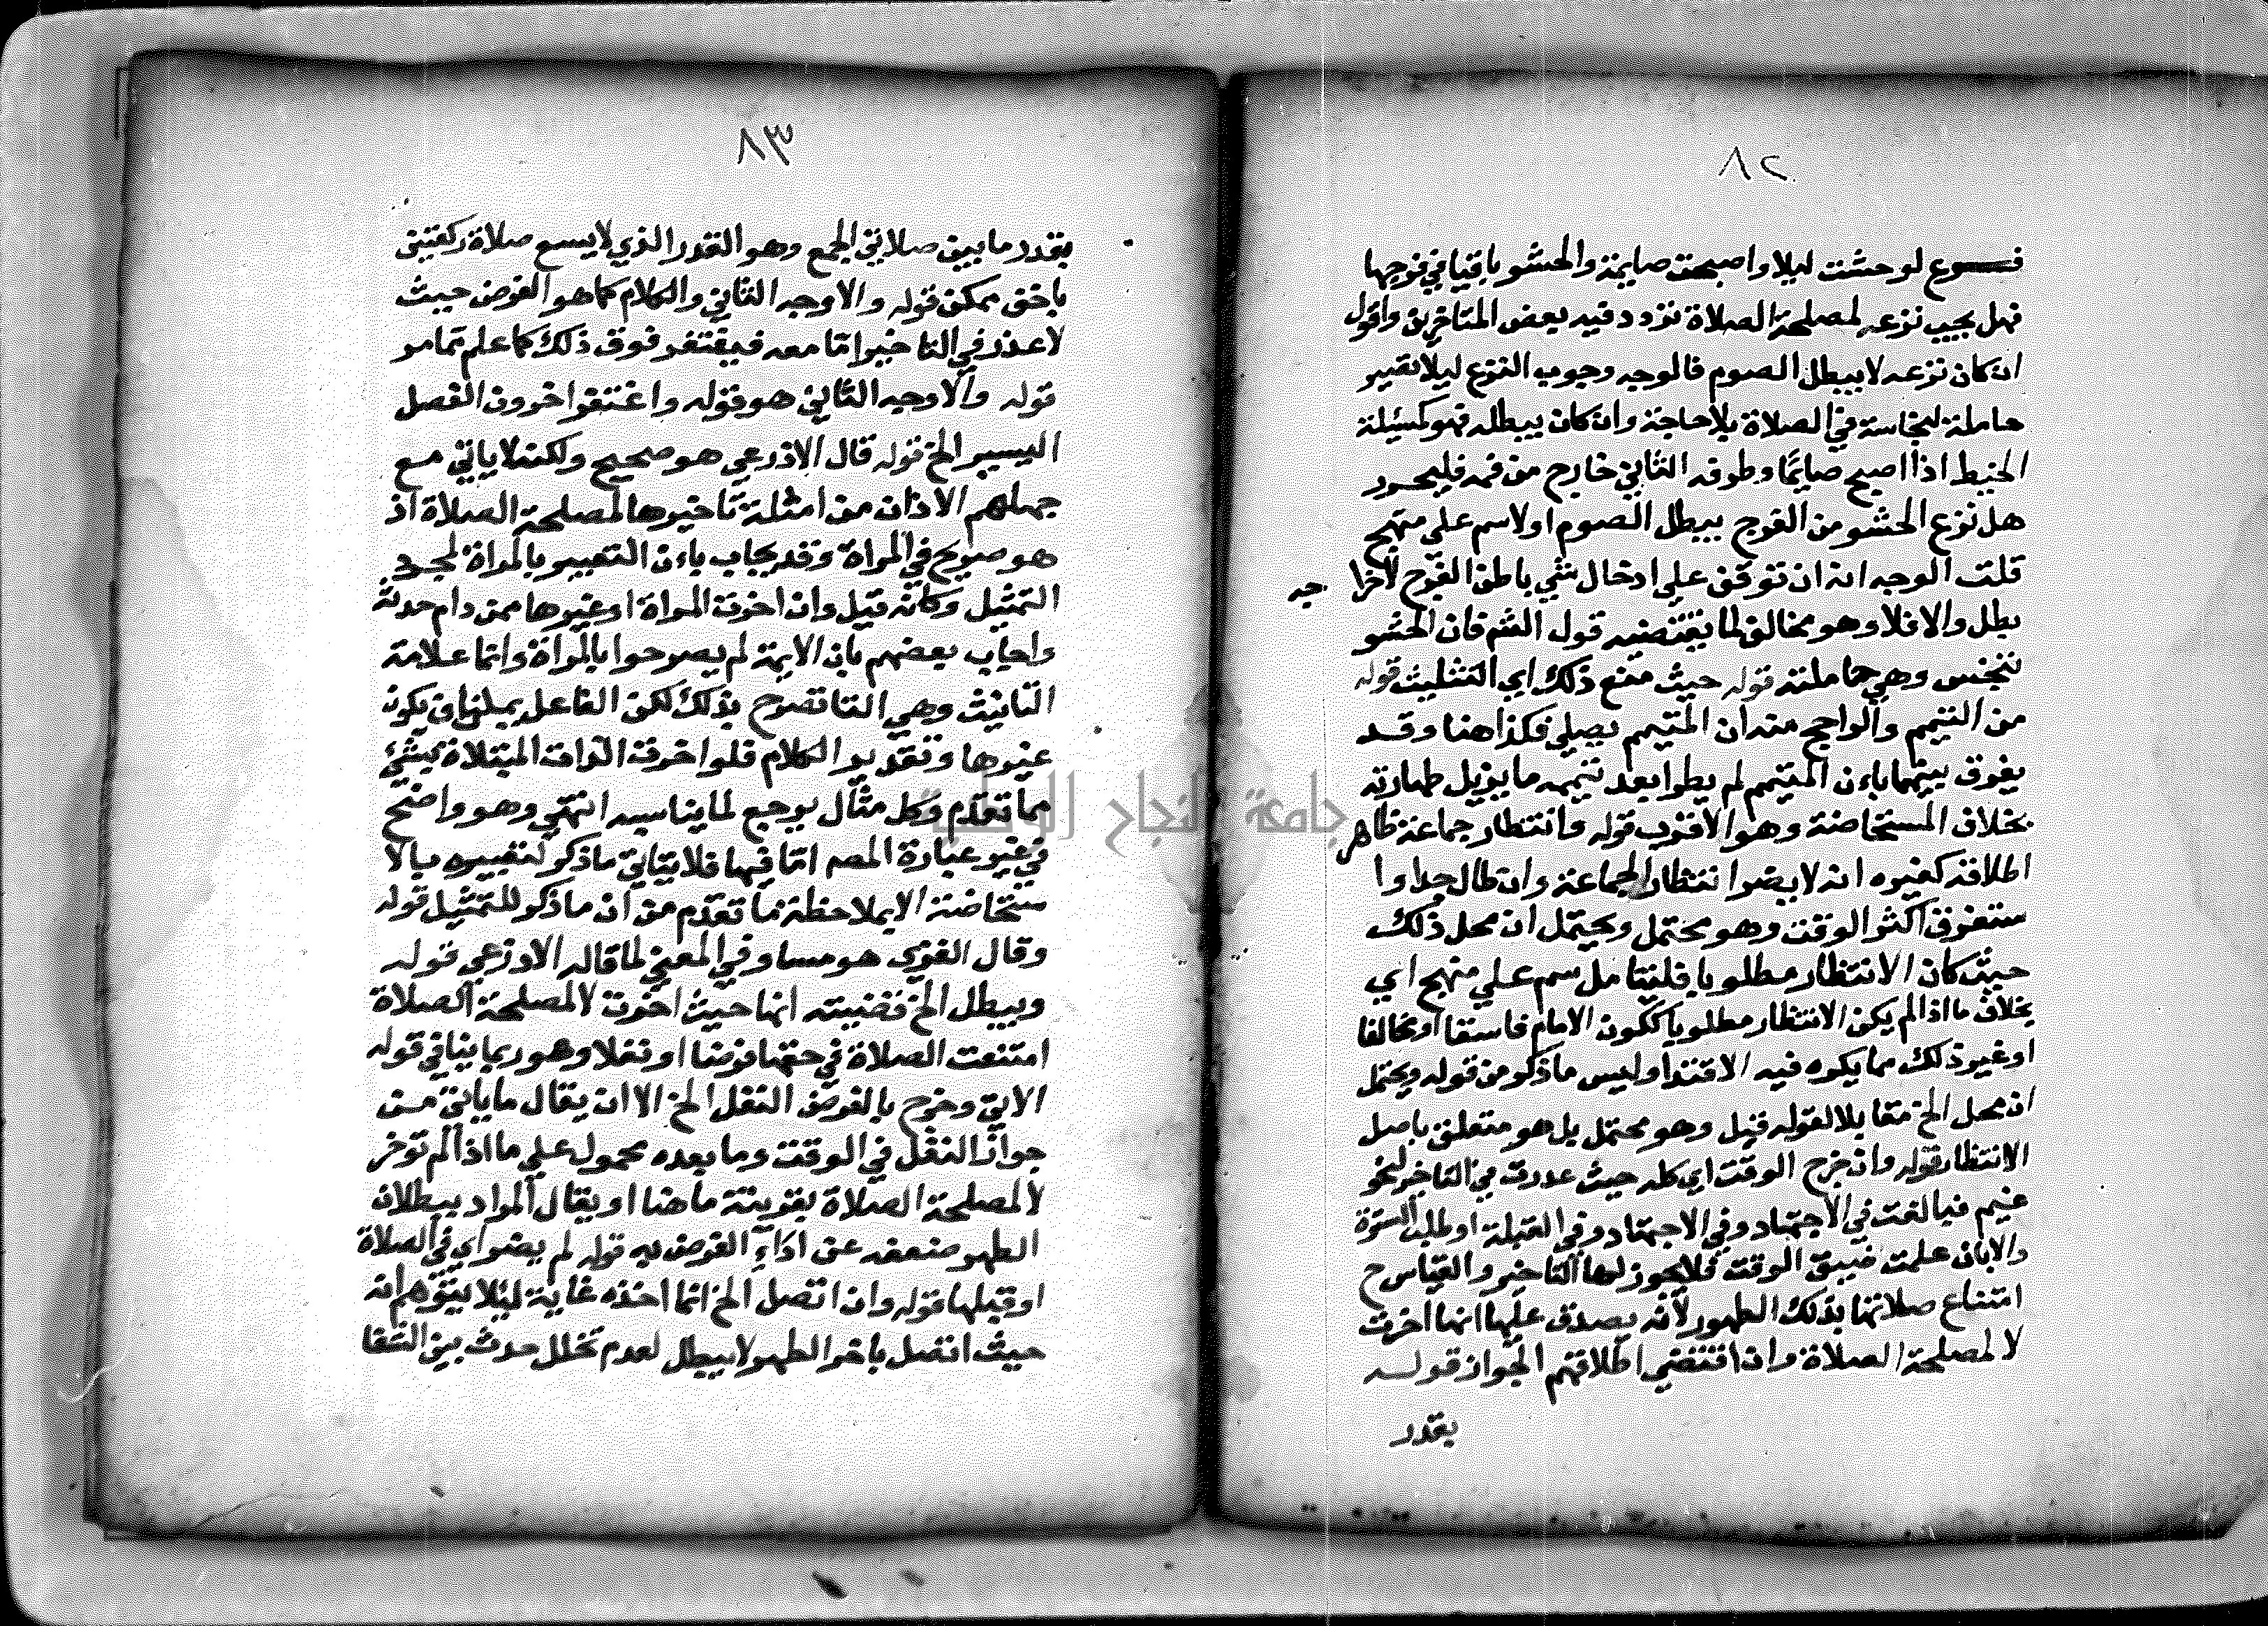 ٨٢
فـــرع لو حشت ليلا واصبحت صايمة والحشو باقيا في فرجها
فهل يجب نزعه لمصلحة الصلاة تردد فيه بعض المتاخرين واقول
ان كان نزعه لا يبطل الصوم فالوجه وجوب النزع ليلا تصير
حاملة لنجاسة في الصلاة بلا حاجة وان كان يبطله فهو كمسئلة
الخيط اذا اصبح صايمًا وطرفه الثاني خارج من فمه فليحرر
هل نزع الحشو من الفرج يبطل الصوم اولا سم علي منهج
قلت الوجه انه ان توقف علي ادخال شي باطن الفرج لاخرا جه
بطل والا فلا وهو مخالف لما يقتضيه قول الشم فان الحشو
تنجس وهي حاملته قوله حيث منع ذلك اي التثليث قوله
من التيمم والراجح منه ان المتيمم يصلي فكذا هنا وقد
يفرق بينهما باءن المتيمم لم يطرا بعد تيممه ما يزيل طهارته
بخلاف المستحاضة وهو الاقرب قوله وانتظار جماعة ظاهر
اطلاقه كغيره انه لا يضر انتظار الجماعة وان طال جدا وا
ستغرق اكثر الوقت وهو محتمل ويحتمل ان محل ذلك
حيث كان الانتظار مطلوبا فليتامل سم علي منهج اي
بخلاف ما اذا لم يكن الانتظار مطلوبا ككون الامام فاسقا او مخالفا
او غير ذلك مما يكره فيه الاقتدا وليس ما ذكر من قوله ويحتمل
ان محل الخ مقابلا لقوله قبل وهو محتمل بل هو متعلق باصل
الانتظار قوله وان خرج الوقت اي كله حيث عذرت في التاخير لنحو
غيم فبالغت في الاجتهاد وفي الاجتهاد وفي القبلة او طلب السترة
والا بان علمت ضيق الوقت فلا يجوز لها التاخير والقياس ح
امتناع صلاتها بذلك الطهور لانه يصدق عليها انها اخرت
لا لمصلحة الصلاة وان اقتضي اطلاقهم الجواز قولـــه
بقدر
٨٣
بقدر ما بين صلاتي الجمع وهو القدر الذي لا يسع صلاة ركعتين
باخف ممكن قوله والاوجه الثاني والكلام كما هو الفرض حيث
لا عذر في التاخير امّا معه فيغتفر فوق ذلك كما علم مما مر
قوله والاوجه الثاني هو قوله واغتفر اخرون الفصل
اليسير الخ قوله قال الاذرعي هو صحيح ولكنه لا ياتي مع
جعلهم الاذان من امثلة تاخيرها لمصلحة الصلاة اذ
هو صريح في المراة وقد يجاب باءن التعبير بالمراة لمجرد
التمثيل وكانه قيل وان اخرت المراة او غيرها ممن دام حدثه
واجاب بعضهم بان الايمة لم يصرحوا بالمراة وانما علامة
التانيث وهي التا تصرح بذلك لكن الفاعل يمكن ان يكون
غيرها وتقدير الكلام فلو اخرت الذات المبتلاة بشئ
مما تقدم وكل مثال يرجع لما يناسبه انتهي وهو واضح
في غير عبارة المصم امّا فيها فلا يتاتي ما ذكر لتعبيره بالا
ستحاضة الا بملاحظة ما تقدم من ان ما ذكر للتمثيل قوله
وقال الغزي هو مساو في المعني لما قاله الاذرعي قوله
ويبطل الخ قضيته انها حيث اخرت لا لمصلحة الصلاة
امتنعت الصلاة في حقها فرضا او نفلا وهو ربما ينافي قوله
الاتي وخرج بالفرض النفل الخ الا ان يقال ما ياتي من
جواز النفل في الوقت وما بعده محمول علي ما اذا لم تؤخر
لا لمصلحة الصلاة بقرينة ما هنا او يقال المراد ببطلان
الطهر ضعفه عن ادآء الفرض به قوله لم يضر اي في الصلاة
او قبلها قوله وان اتصل الخ انما اخذه غاية ليلا يتوهم انه
حيث اتصل باخر الطهر لا يبطل لعدم تخلل حدث بين الشفا
جامعة النجاح الوطنية